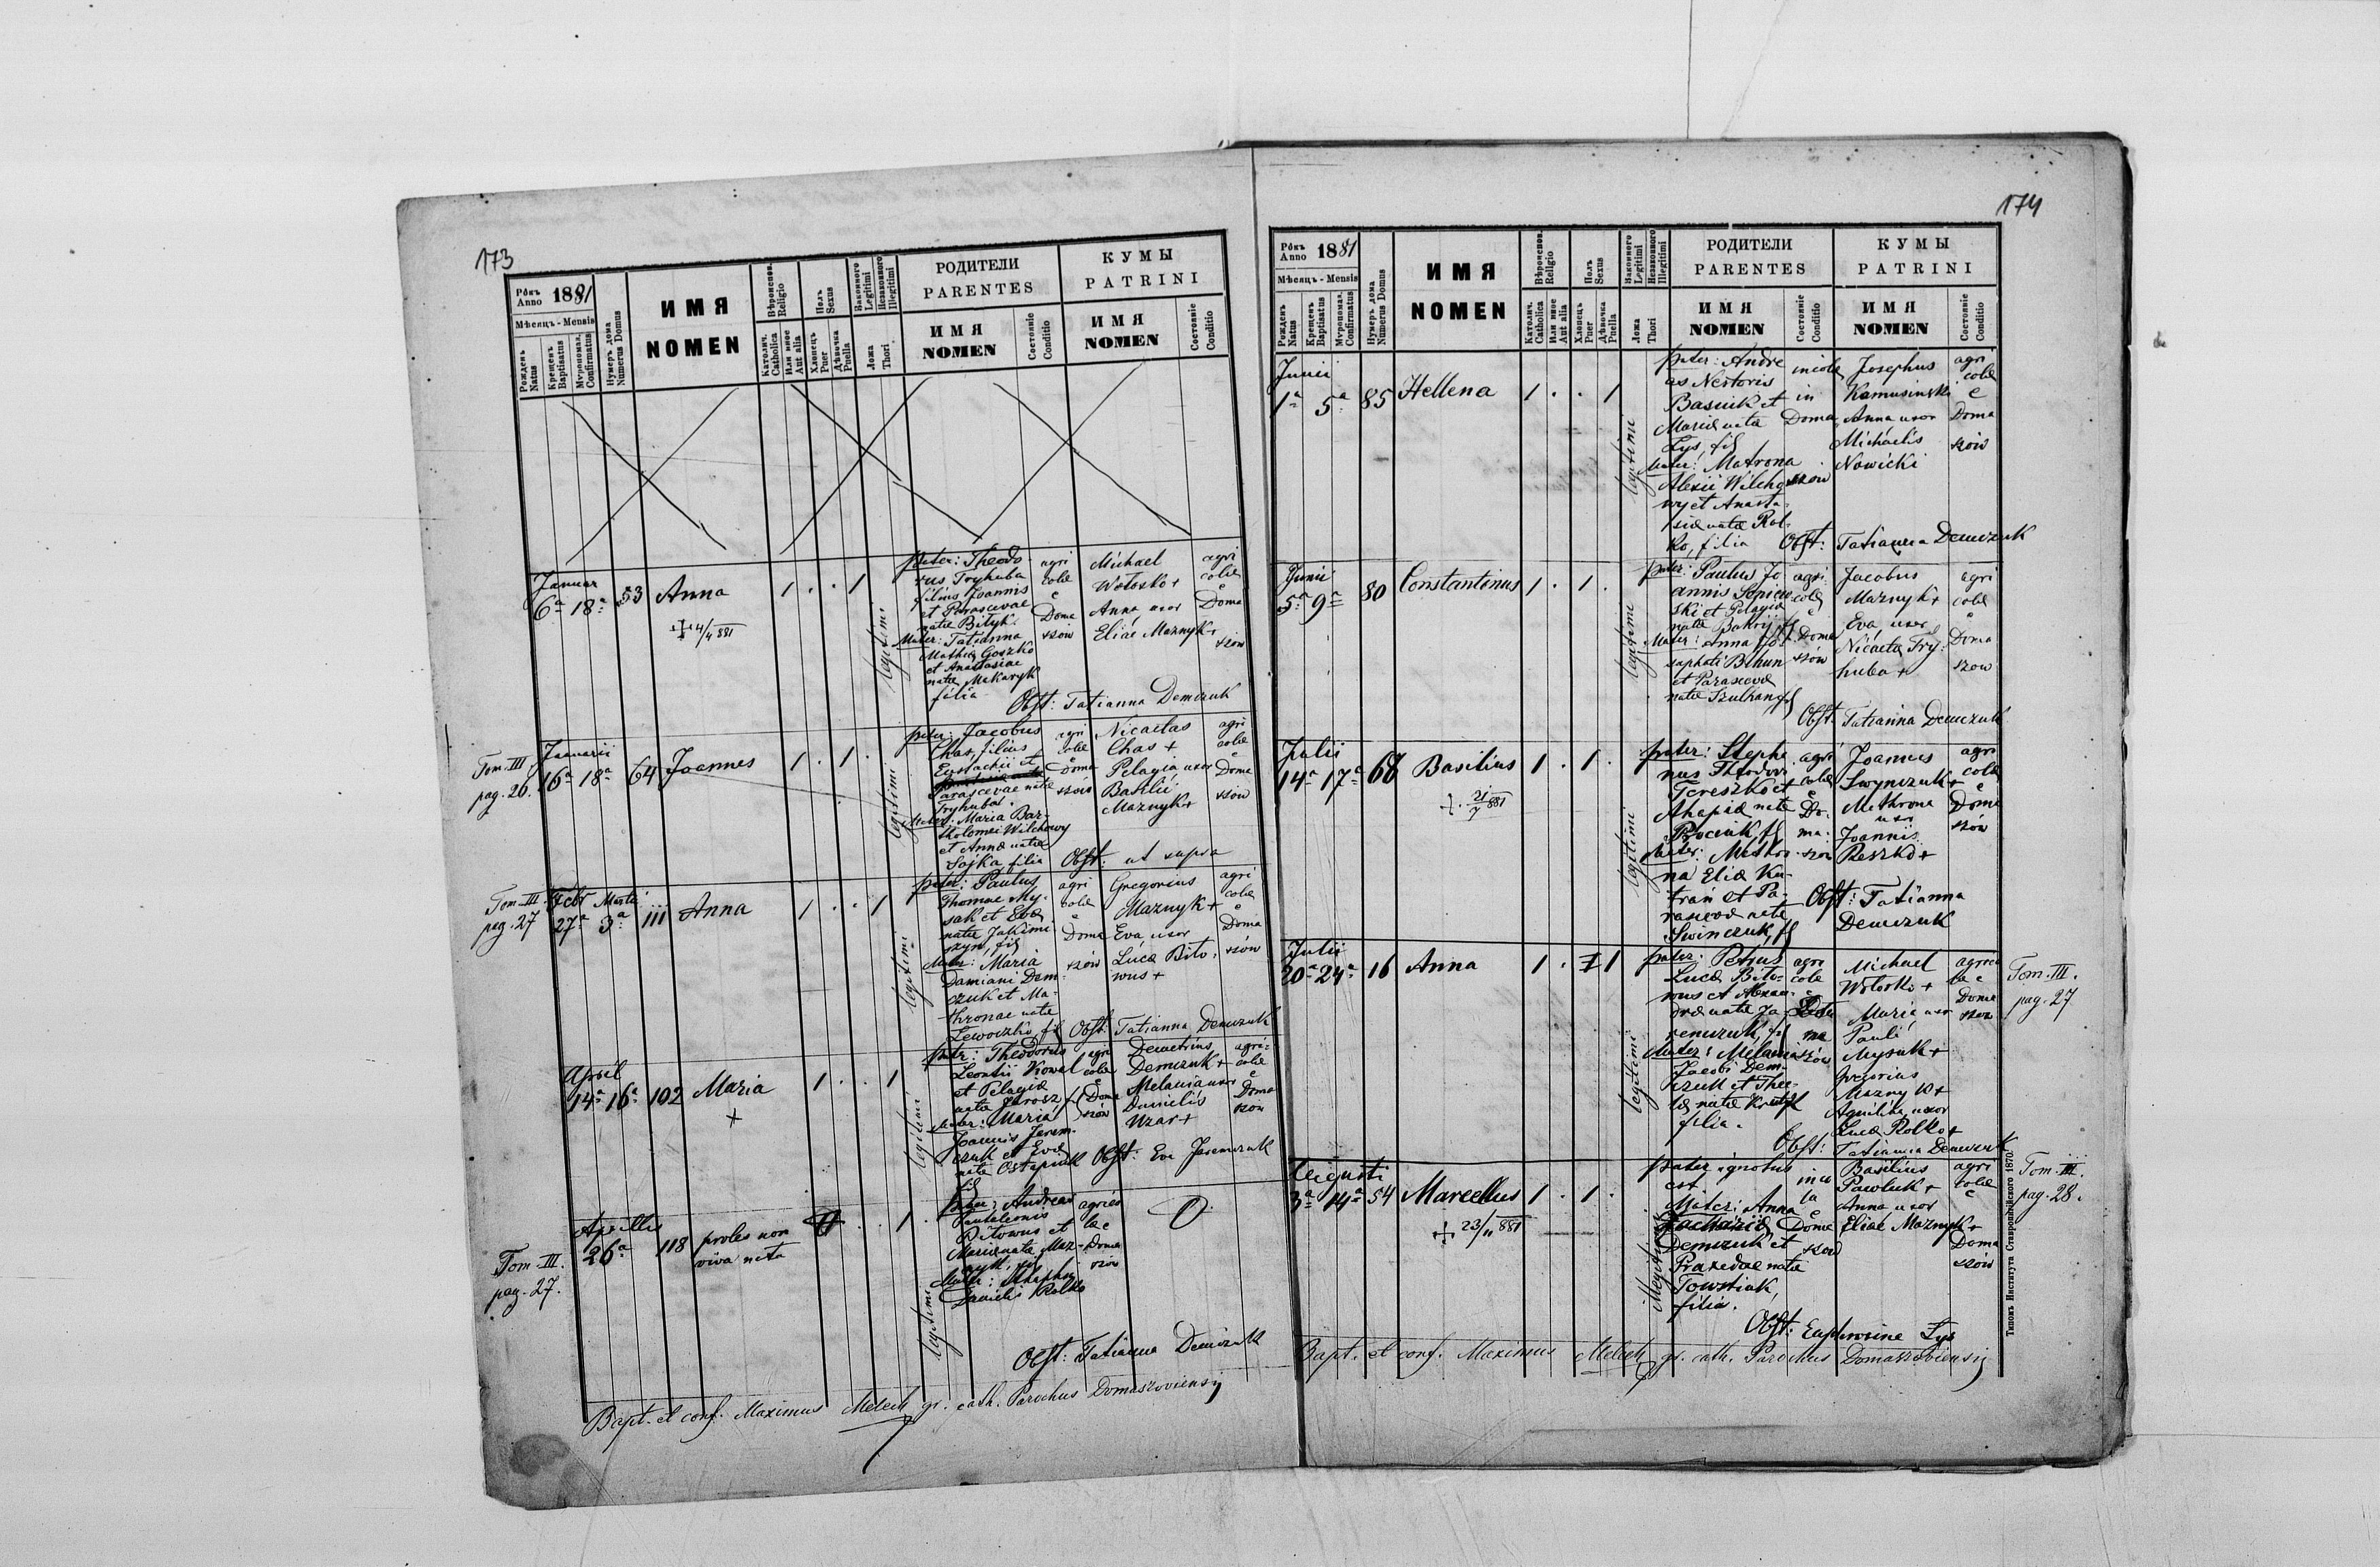 173
Рôкъ Anno 1881
Мѣсяцъ - Mensis
Рожденъ Natus
Крещенъ Baptisatus
Мѵропомаз. Confirmatus
Нумеръ дома Numerus Domus
ИМЯ
NOMEN
Вѣроиспов. Religio
Католич. Catholica
Или иное Aut alia
Полъ Sexus
Хлопецъ Puer
Дѣвочка Puella
Законного Legitimi
Незаконного Illegitimi
Ложа Thori
РОДИТЕЛИ
PARENTES
ИМЯ
NOMEN
Состояніе Conditio
КУМЫ
PATRINI
ИМЯ
NOMEN
Состояніе Conditio
Januar
6ª 18ª 53 Anna 1 . . 1
+ 4/4 881
legitimi
pater: Theodo
rus Tryhuba
filius Joannis
et Parascevae
natae Bityk.
Mater: Tatianna
Mathiae Goszko
et Anastasiae
natae Makaryk
filia
agri
colae
e
Doma
szów
Michael
Wołosko +
Anna uxor
Eliae Maznyk +
agri
colae
e
Doma
szów
Obst: Tatianna Demczuk
Tom. III.
pag. 26.
Januarii
16ª 18ª 64 Joannes 1 . 1 .
legitimi
pater: Jacobus
Chas, filius
Eustachii et
Parascevae natae
Tryhuba.
Mater: Maria Bar-
tholomei Wilchowy
et Annae natae
Sojka, filia
agri
colae
e
Doma
szów
Nicaetas
Chas +
Pelagia uxor
Basilii
Maznyk +
agri
colae
e
Doma
szów
Obst: ut supra
Tom. III.
pag. 27
Febr Martii
27ª 3ª 111 Anna 1 . . 1
legitimi
pater: Paulus
Thomae My-
sak et Evae
natae Jakimi-
szyn, fil
Mater: Maria
Damiani Dem-
czuk et Ma-
thronae natae
Lewoczko, fil
agri
colae
e
Doma
szów
Gregorius
Maznyk +
Eva uxor
Lucae Bito-
wus +
agri
colae
e
Doma
szów
Obst: Tatianna Demczuk
April
14ª 16ª 102 Maria 1 . . 1
+
legitimi
pater: Theodorus
Leontii Kowal
et Pelagiae
natae Jarosz, f
Mater: Maria
Joannis Jarem-
czuk et Evae
natae Ostapiuk
fil
agri
colae
e Doma
szów
Demetrius
Demczuk +
Melania uxor
Danielis
Uzar +
agri-
colae
e
Doma
szów
Obst: Eva Jaremczuk
Tom. III.
pag. 27.
Aprilis
26ª 118 proles non
viva nata
. 1 .
legitimi
pater: Andreas
Pantaleonis
Bitowus et
Mariae natae Maz-
nyk, fil
Mater:
Danielis Rolko
agrico
lae
Doma
szów
Obst: Tatianna Demczuk
Bapt. et conf. Maximus Melech gr. cath. Parochus Domaszoviensis
174
Рôкъ Anno 1881
Мѣсяцъ - Mensis
Рожденъ Natus
Крещенъ Baptisatus
Мѵропомаз. Confirmatus
Нумеръ дома Numerus Domus
ИМЯ
NOMEN
Вѣроиспов. Religio
Католич. Catholica
Или иное Aut alia
Полъ Sexus
Хлопецъ Puer
Дѣвочка Puella
Законного Legitimi
Незаконного Illegitimi
Ложа Thori
РОДИТЕЛИ
PARENTES
ИМЯ
NOMEN
Состояніе Conditio
КУМЫ
PATRINI
ИМЯ
NOMEN
Состояніе Conditio
Junii
1ª 5ª 85 Hellena 1 . . 1
legitimi
pater: Andre
as Nestoris
Basiuk et
Mariae natae
Lys, fil
Mater: Matrona
Alexii Wilcho
wy et Anasta-
siae natae Rol-
ko, filia
incolae
in
Doma
szow
Josephus
Kamusinski
Anna uxor
Michaelis
Nowicki
agri
colae
e
Doma
szów
Obst: Tatianna Demczuk
Junii
5ª 9ª 80 Constantinus 1 . 1 .
legitimi
pater: Paulus Jo
annis Sopicow
ski et Pelagiae
natae f
Mater: Anna Jo-
saphati Bihun
et Parascevae
natae
agri
colae
e
Doma
szów
Jacobus
Maznyk +
Eva uxor
Nicaetae Try-
huba +
agri
colae
e
Doma
szow
Obst: Tatianna Demczuk
Julii
14ª 17ª 68 Basilius 1 . 1 .
+ 21/7 881
legitimi
pater: Stepha
nus Theodori
Tereszko et
Ahapiae natae
Mater: Mathro
na Eliae Ku-
tran et Pa-
rascevae natae
Swinczuk, f
agri
colae
e
Do-
ma-
szów
Joannes
Swynczuk +
Mathrona
uxor
Joannis
Reszko +
agri
colae
e
Doma
szów
Obst: Tatianna
Demczuk
Julii
20ª 24ª 16 Anna 1 . 1
legitimi
pater: Petrus
Lucae Bito-
wus et Alexan-
drae natae Ja-
remczuk, fil
Mater: Melania
Jacobi Dem-
czuk et Thec-
lae natae
filia.
agri
colae
e
Do
ma
szów
Michael
Wołosko +
Maria uxor
Pauli
Mysak +
Gregorius
Maznyk +
Aquilina uxor
Lucae Rolko +
agrico
lae e
Doma
szow
Tom. III.
pag. 27
Obst: Tatianna Demczuk
Augusti
3ª 14ª 54 Marcellus 1 . 1 .
+ 23/11 881
illegitimi
pater ignotus
est
Mater: Anna
Zachariae
Demczuk et
Praxedae natae
Towstiak,
filia.
inco
la
e
Doma
szow
Basilius
Pawluk +
Anna uxor
Eliae Maznyk +
agri
colae
e
Doma
szów
Tom. III.
pag. 28.
Obst: Euphrosine Lys
Bapt. et conf. Maximus Melech gr. cath. Parochus Domaszoviensis
Типомъ Института Ставропійского 1870.